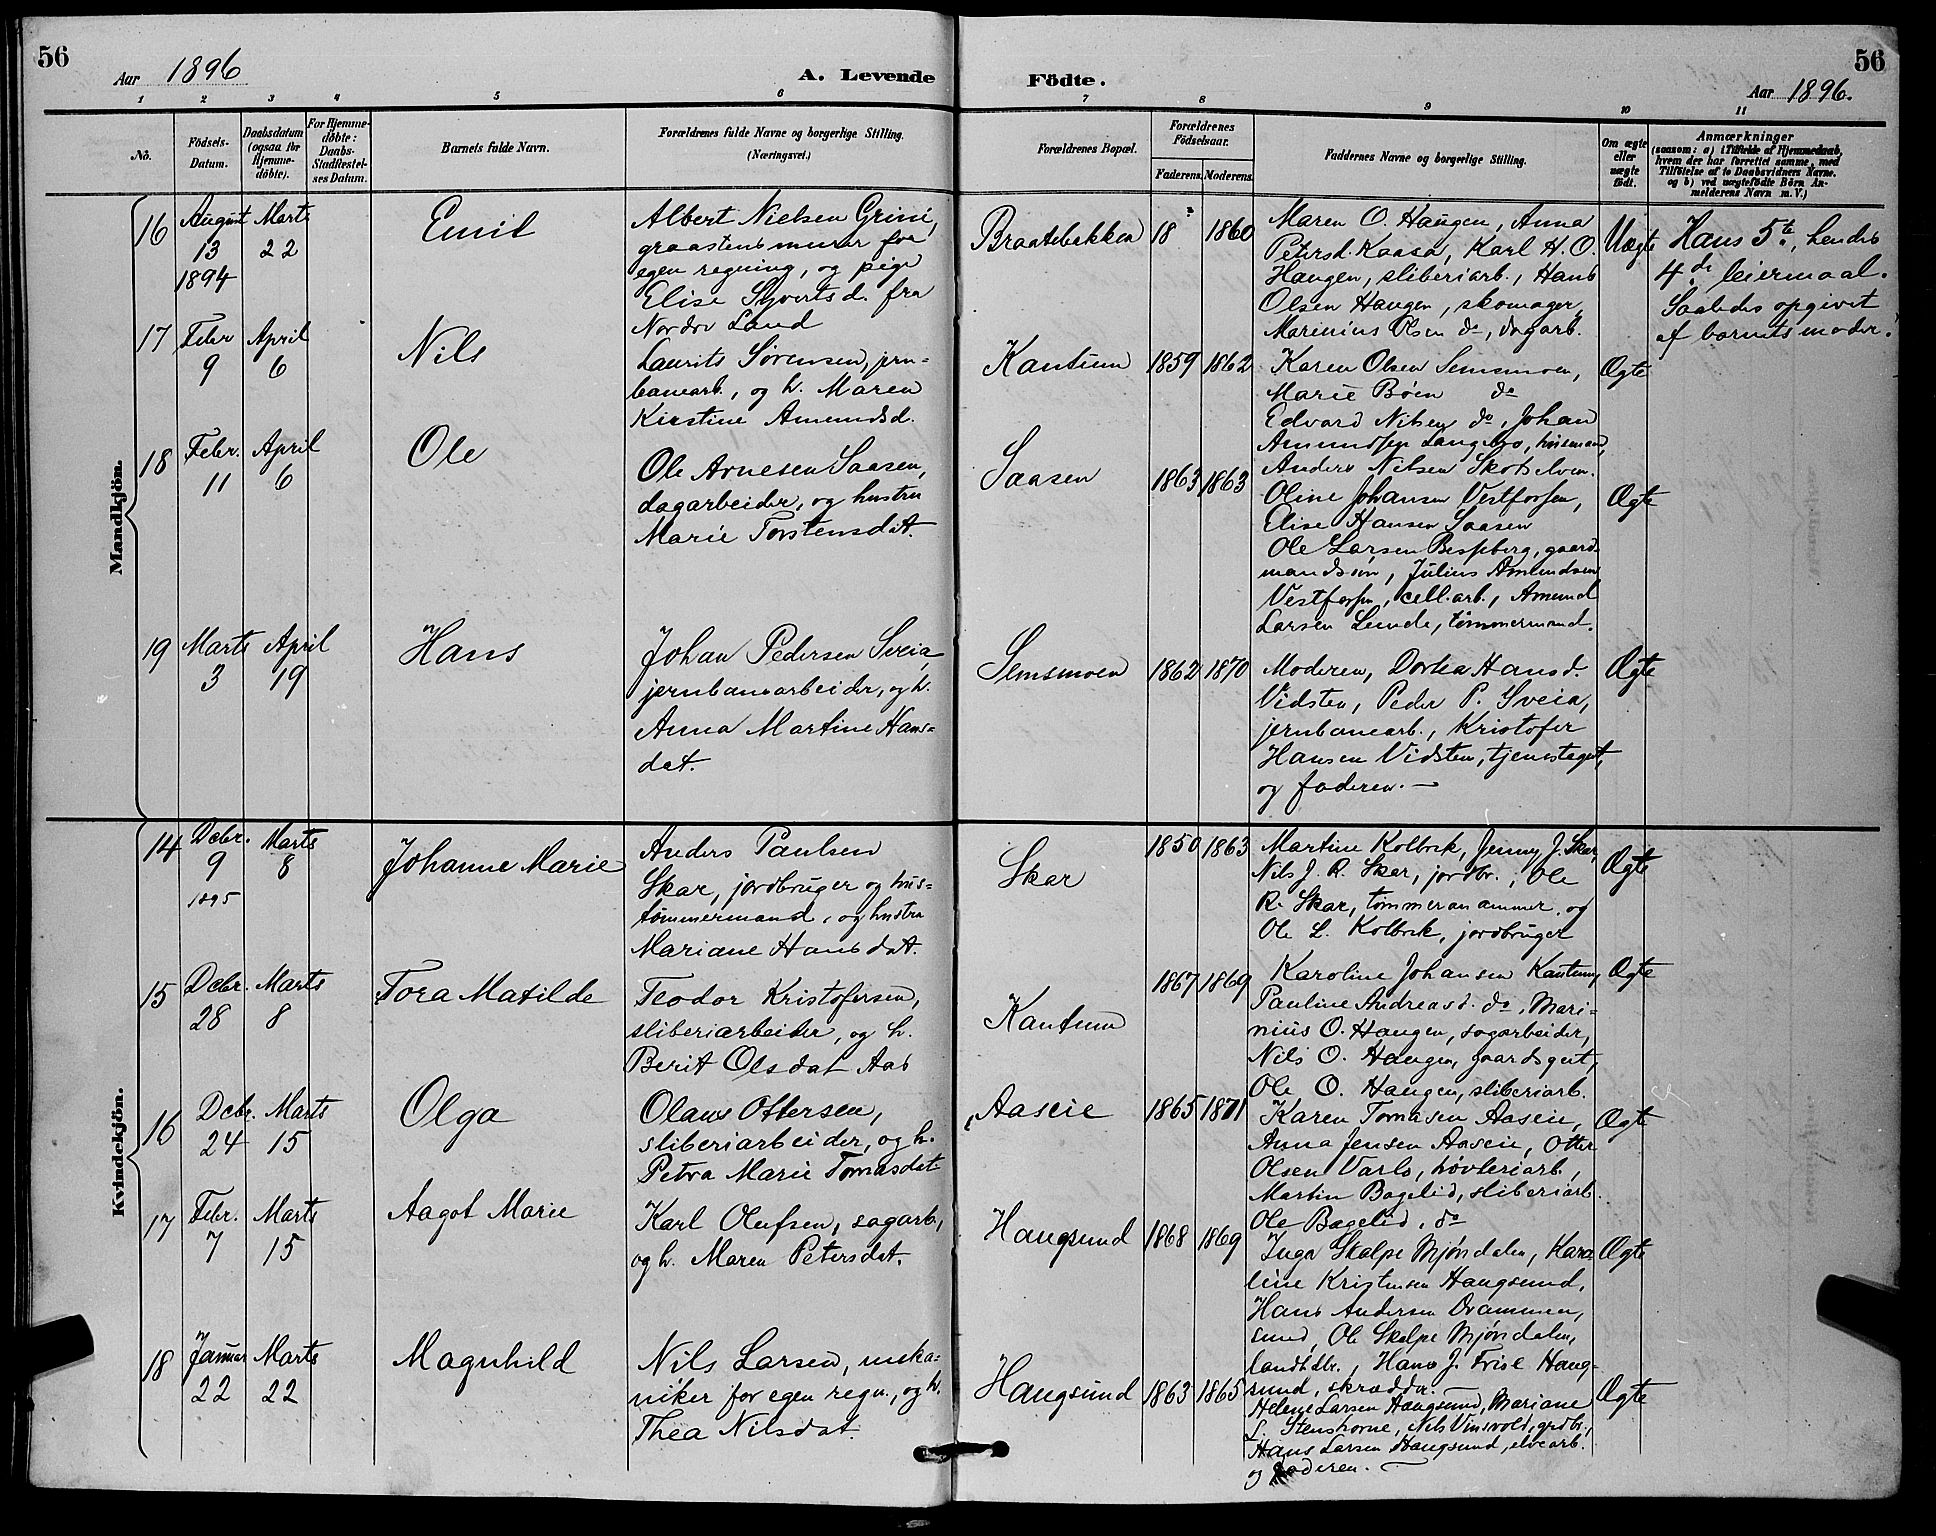 56
Aar 1896
A. Levende
Födte.
56
Aar 1896.
1 2 3 4 5 6 7 8 9 10 11
No.
Födsels-
Datum.
Daabsdatum
(ogsaa for
Hjemme-
döbte).
For Hjemme-
döbte:
Daabs-
Stadfæstel-
ses Datum.
Barnets fulde Navn.
Forældrenes fulde Navne og borgerlige Stilling.
(Næringsvei.)
Forældrenes Bopæl.
Forældrenes
Födselsaar.
Faderens. Moderens.
Faddernes Navne og borgerlige Stilling.
Om ægte
eller
uægte
födt.
Anmærkninger
(saasom: a) i Tilfælde af Hjemmedaab,
hvem der har forrettet samme, med
Tilföielse af to Daabsvidners Navne.
og b) ved uægtefödte Börn An-
melderens Navn m. V.)
Mandkjön.
16
August
13
1894
Marts
22
Emil
Albert Nielsen Grini,
graastensmurer for
egen regning, og pige
Elise Syvertsd. fra
Nordre Land
Braatebakken
18 ?
1860
Maren O. Haugen, Anna
Petersd. Kaasa, Karl H. O.
Haugen, sliberiarb., Hans
Olsen Haugen, skomager,
Marinius Olsen do, dagarb.
Uægte
Hans 5te, hendes
4de leiermaal.
Saaledes opgivet
af barnets moder.
17
Febr
9
April
6
Nils
Laurits Sørensen, jern-
banearb., og h. Maren
Kirstine Amundsd.
Kantum
1859
1862
Karen Olsen Semsmoen,
Marie Böen do
Edvard Nilsen do, Johan
Amundsen Langebro, husmand,
Anders Nilsen Skotselven.
Ægte
18
Febr.
11
April
6
Ole
Ole Arnesen Saasen,
dagarbeider, og hustru
Marie Torstensdat.
Saasen
1863
1863
Oline Johansen Vestfossen,
Elise Hansen Saasen
Ole Larsen Besseberg, gaard-
mandssön, Julius Amundsen
Vestfossen, cell.arb., Amund
Larsen Lunde, tömmermand.
Ægte
19
Marts
3
April
19
Hans
Johan Pedersen Sveia,
jernbanearbeider, og h.
Anna Martine Hans-
dat.
Semsmoen
1862
1870
Moderen, Dorthea Hansd.
Vidsten, Peder P. Sveia,
jernbanearb., Kristofer
Hansen Vidsten, tjenestegut,
og faderen. —
Ægte
Kvindekjön.
14
Dcbr.
9
1895
Marts
8
Johanne Marie
Anders Paulsen
Skar, jordbruger og hus-
tömmermand, og hustru
Mariane Hansdat.
Skar
1850
1863
Martine Kolbrek, Jenny J. Skar,
Nils J. R. Skar, jordbr., Ole
R. Skar, tömmeranammer, og
Ole L. Kolbrek, jordbruger
Ægte
15
Dcbr.
28
Marts
8
Tora Matilde
Teodor Kristofersen,
sliberiarbeider, og h.
Berit Olsdat Aas
Kantum
1867
1869
Karoline Johansen Kantum,
Pauline Andreasd. do, Mari-
nius O. Haugen, sagarbeider,
Nils O. Haugen, gaardsgut,
Ole O. Haugen, sliberiarb.
Ægte
16
Dcbr.
24
Marts
15
Olga
Olaus Ottersen,
sliberiarbeider, og h.
Petra Marie Tomasdat
Aaseie
1865
1871
Karen Tomasen Aaseie,
Anna Jensen Aaseie, Otter
Olsen Varlo, hövleriarb.,
Martin Bagelid, sliberiarb.
Ole Bagelid, do
Ægte
17
Febr.
7
Marts
15
Aagot Marie
Karl Olufsen, sagarb.,
og h. Maren Petersdat.
Haugsund
1868
1869
Inga Skalpe Mjöndalen, Karo
line Kristensen Haugsund,
Hans Andersen Drammen,
smed, Ole Skalpe Mjöndalen,
landhdlr., Hans J. Frisl Haug-
sund, skrædder. —
Ægte
18
Januar
22
Marts
22
Magnhild
Nils Larsen, meka-
niker for egen regn., og h.
Thea Nilsdat.
Haugsund
1863
1865
Helene Larsen Haugsund, Mariane
L. Stenshorne, Nils Vinsvold, grdbr.,
Hans Larsen Haugsund, elvearb.
og faderen. —
Ægte